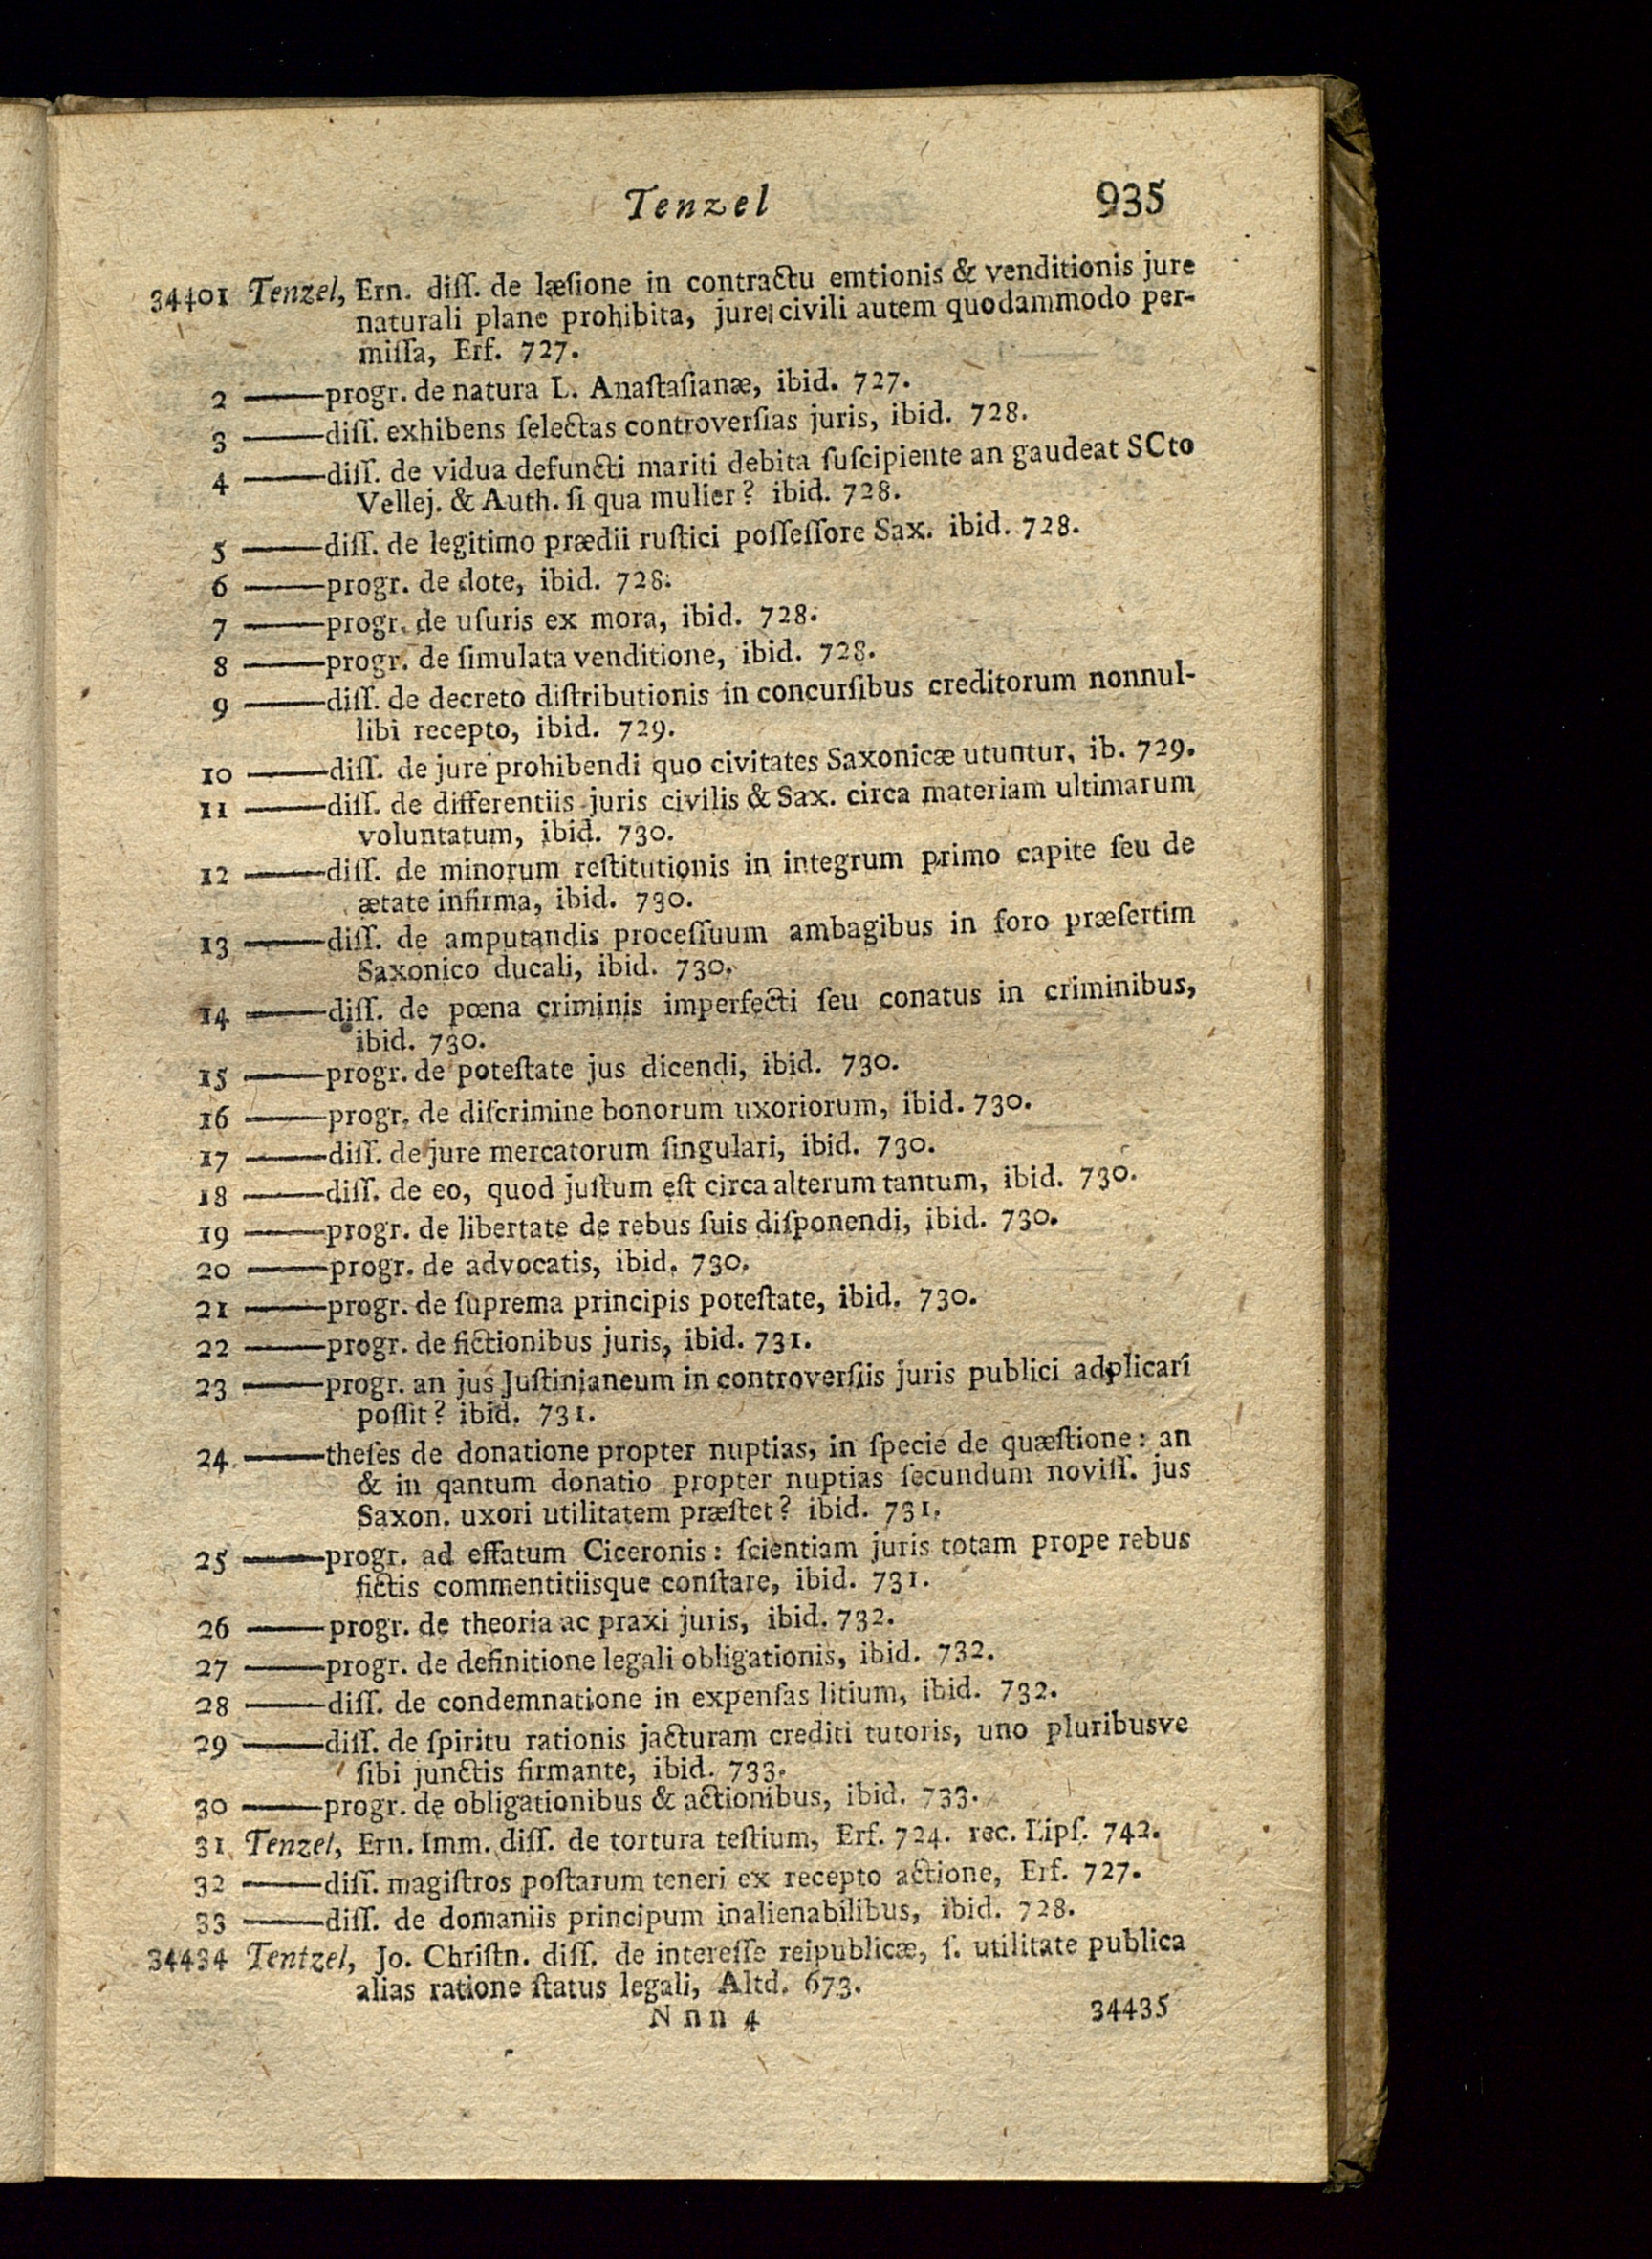 Tenzel 935
34401 Tenzel, Ern. diſſ. de læſione in contractu emtionis & venditionis jure
naturali plane prohibita, jure civili autem quodammodo per-
miſſa, Erf. 727.
2 ——progr. de natura L. Anaſtaſianæ, ibid. 727.
3 ——diſſ. exhibens ſelectas controverſias juris, ibid. 728.
4 ——diſſ. de vidua defuncti mariti debita ſuſcipiente an gaudeat SCto
Vellej. & Auth. ſi qua mulier? ibid. 728.
5 ——diſſ. de legitimo prædii ruſtici poſſeſſore Sax. ibid. 728.
6 ——progr. de dote, ibid. 728.
7 ——progr. de uſuris ex mora, ibid. 728.
8 ——progr. de ſimulata venditione, ibid. 728.
9 ——diſſ. de decreto diſtributionis in concurſibus creditorum nonnul-
libi recepto, ibid. 729.
10 ——diſſ. de jure prohibendi quo civitates Saxonicæ utuntur, ib. 729.
11 ——diſſ. de differentiis juris civilis & Sax. circa materiam ultimarum
voluntatum, ibid. 730.
12 ——diſſ. de minorum reſtitutionis in integrum primo capite ſeu de
ætate infirma, ibid. 730.
13 ——diſſ. de amputandis proceſſuum ambagibus in foro præſertim
Saxonico ducali, ibid. 730.
14 ——diſſ. de pœna criminis imperfecti ſeu conatus in criminibus,
ibid. 730.
15 ——progr. de poteſtate jus dicendi, ibid. 730.
16 ——progr. de diſcrimine bonorum uxoriorum, ibid. 730.
17 ——diſſ. de jure mercatorum ſingulari, ibid. 730.
18 ——diſſ. de eo, quod juſtum eſt circa alterum tantum, ibid. 730.
19 ——progr. de libertate de rebus ſuis diſponendi, ibid. 730.
20 ——progr. de advocatis, ibid. 730.
21 ——progr. de ſuprema principis poteſtate, ibid. 730.
22 ——progr. de fictionibus juris, ibid. 731.
23 ——progr. an jus Juſtinianeum in controverſiis juris publici adplicari
poſſit? ibid. 731.
24 ——theſes de donatione propter nuptias, in ſpecie de quæſtione: an
& in qantum donatio propter nuptias ſecundum noviſſ. jus
Saxon. uxori utilitatem præſtet? ibid. 731.
25 ——progr. ad effatum Ciceronis: ſcientiam juris totam prope rebus
fictis commentitiisque conſtare, ibid. 731.
26 ——progr. de theoria ac praxi juris, ibid. 732.
27 ——progr. de definitione legali obligationis, ibid. 732.
28 ——diſſ. de condemnatione in expenſas litium, ibid. 732.
29 ——diſſ. de ſpiritu rationis jacturam crediti tutoris, uno pluribusve
ſibi junctis firmante, ibid. 733.
30 ——progr. de obligationibus & actionibus, ibid. 733.
31 Tenzel, Ern. Imm. diſſ. de tortura teſtium, Erf. 724. rec. Lipſ. 742.
32 ——diſſ. magiſtros poſtarum teneri ex recepto actione, Erf. 727.
33 ——diſſ. de domaniis principum inalienabilibus, ibid. 728.
34434 Tentzel, Jo. Chriſtn. diſſ. de intereſſe reipublicæ, ſ. utilitate publica
alias ratione ſtatus legali, Altd. 673.
Nnn 4 34435